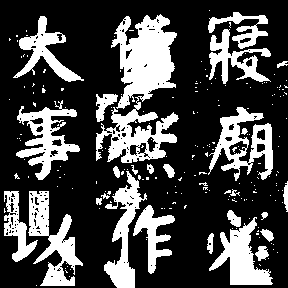 寢廟必
備無作
大事以